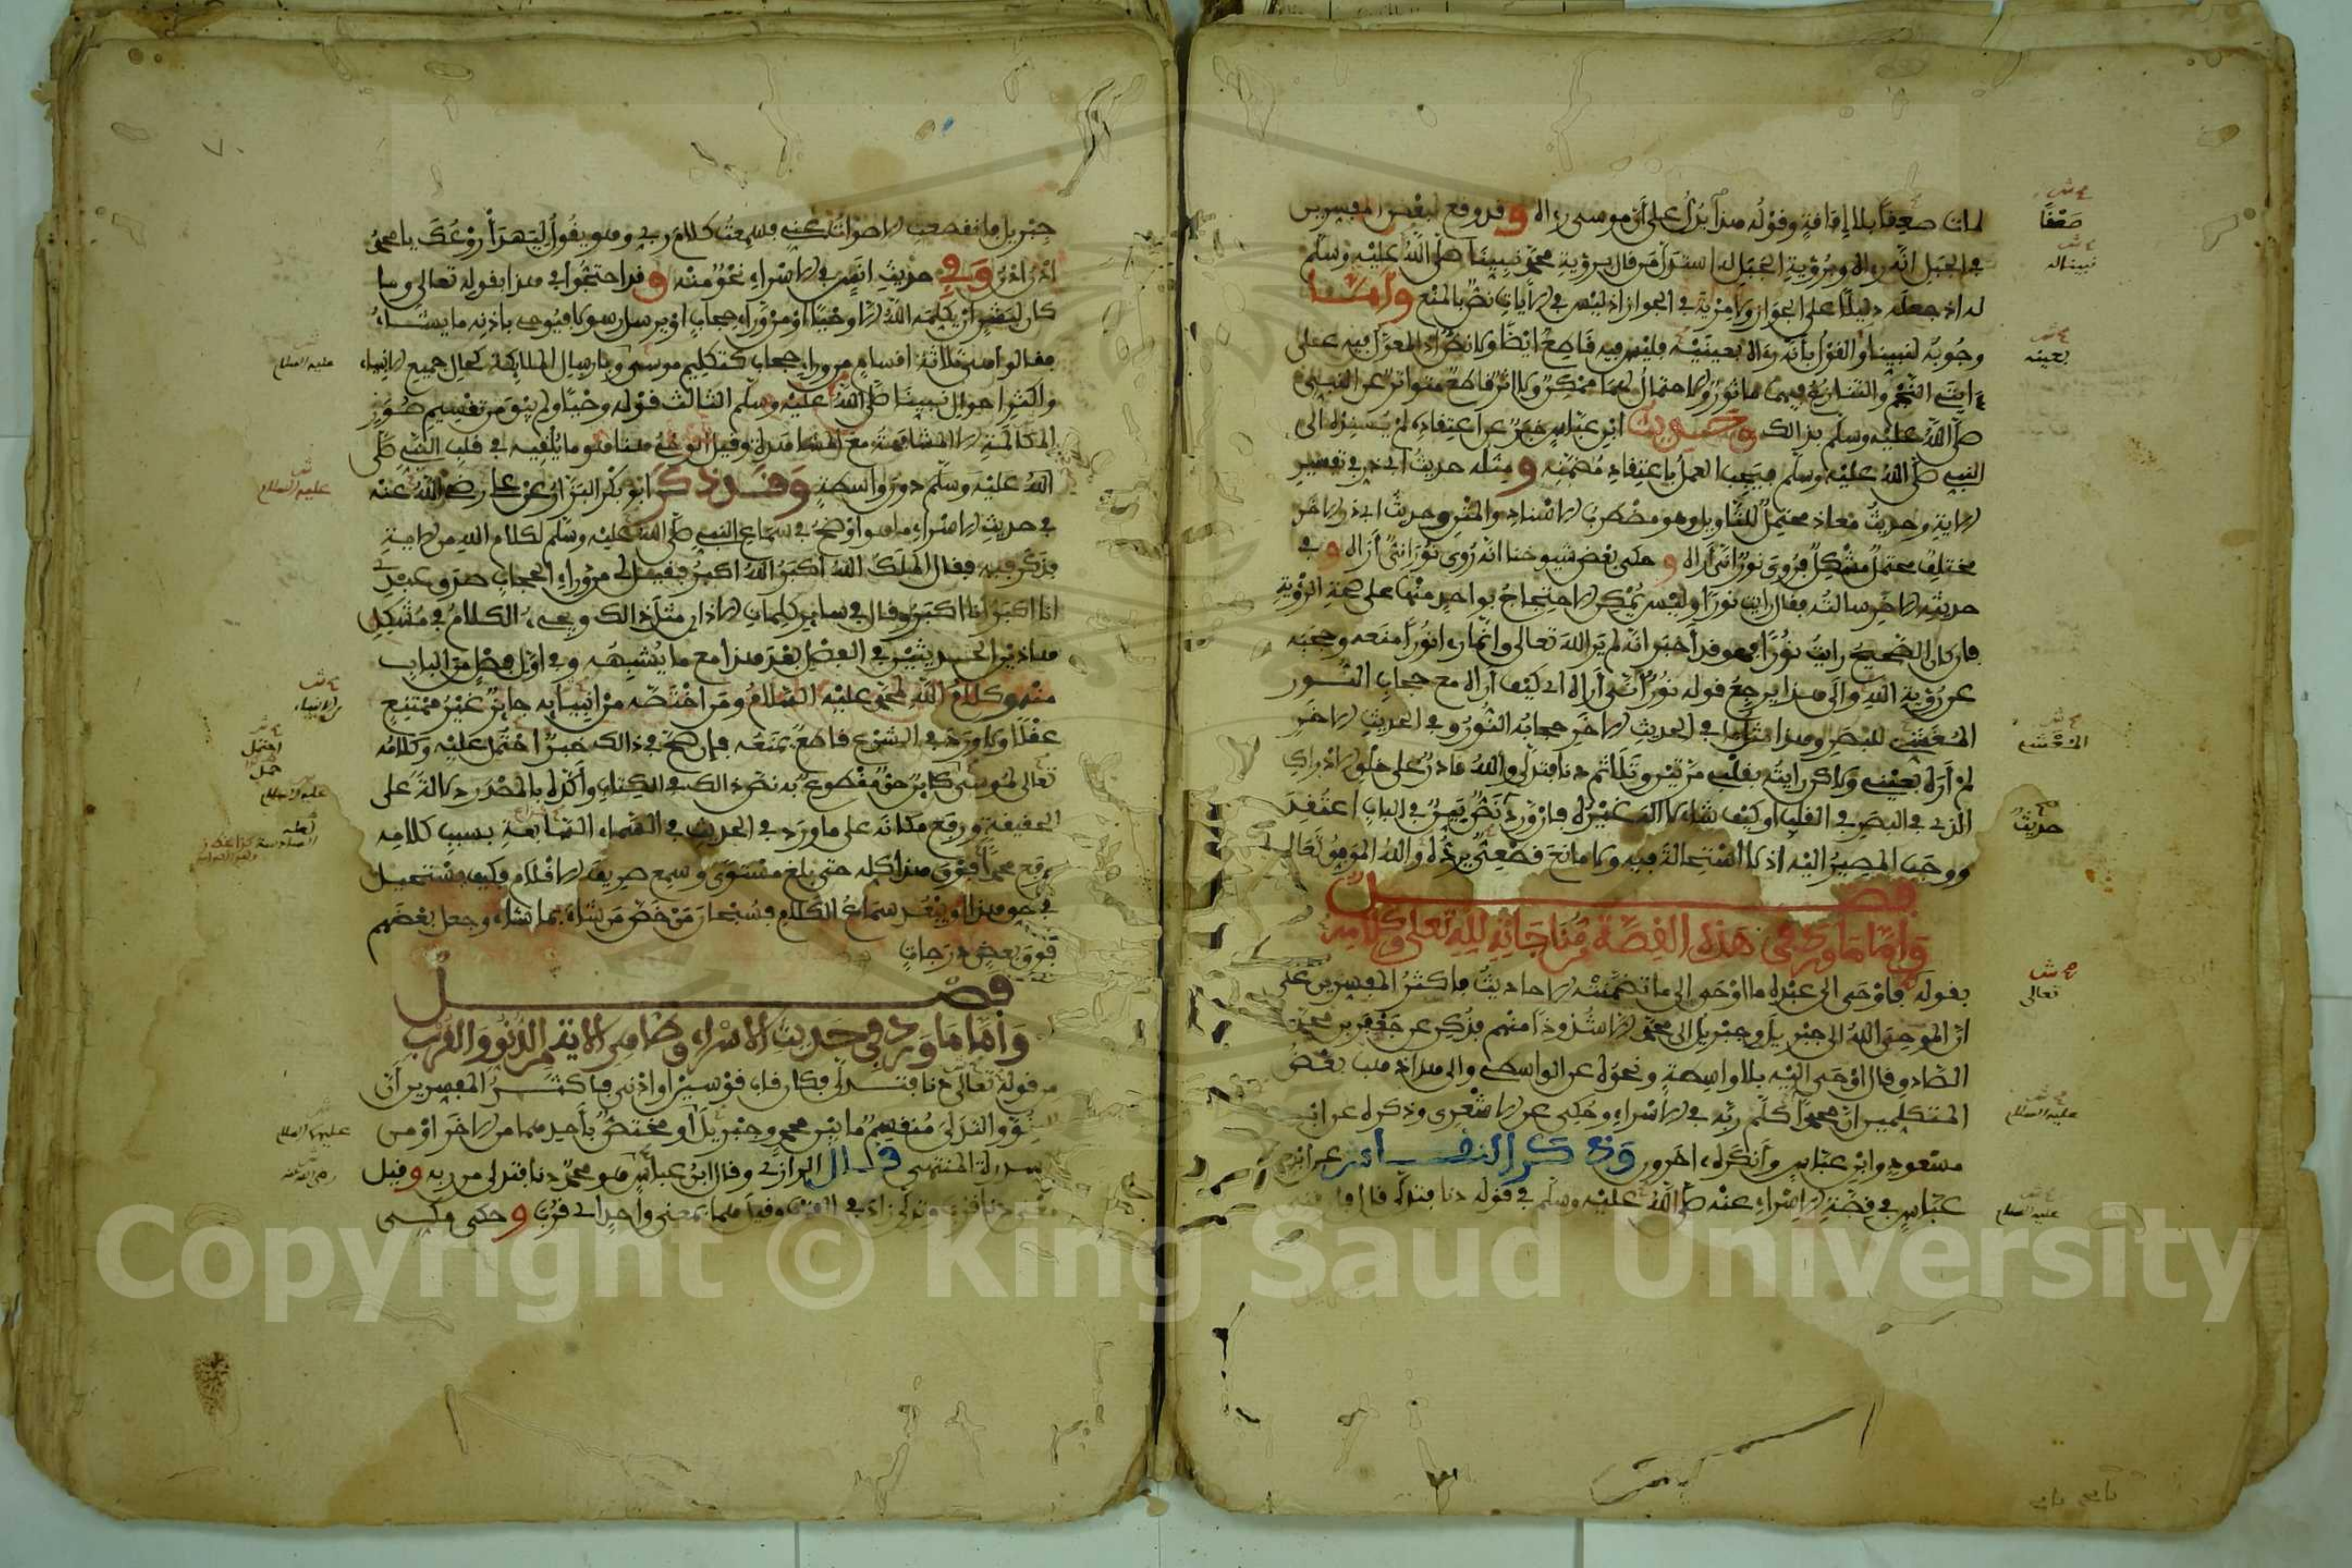 لمات صعقا بلا إفاقة وقوله هذا يدل على أن موسى رءاه وقد وقع لبعض المفسرين
في الجبل أنه رءاه وبرؤية الجبل له استدل من قال برؤية محمد نبينا صلى الله عليه وسلم
له اذ جعله دليلا على الجواز ولا مرية في الجواز اذ ليس في الآيات نص بالمنع وأما
وجوبه لنبينا والقول بأنه رءاه بعينه فليس فيه قاطع أيضا ولا نص إذ المعول فيه على
ءايتي النجم والتنازع فيهما مأثور والاحتمال لهما ممكن ولا اثر قاطع متواتر عن النبي
صلى الله عليه وسلم بذالك وحديث ابن عباس خبر عن اعتقاده لم يسنده الى
النبي صلى الله عليه وسلم فيجب العمل باعتقاد مضمنه ومثله حديث أبي ذر في تفسير
الاية وحديث معاذ محتمل للتأويل وهو مضطرب الاسناد والمتن وحديث ابي ذر الاخر
مختلف محتمل مشكل فروي نور أنى أراه وحكى بعض شيوخنا انه روي نوراني أراه وفي
حديثه الاخر سالته فقال رايت نورا وليس يمكن الاحتجاج بواحد منها على صحة الرؤية
فان كان الصحيح رايت نورا فهو قد أخبر انه لم ير الله تعالى وانما رءا نورا منعه وحجبه
عن رؤية الله والى هذا يرجع قوله نور أنى أراه اي كيف أراه مع حجاب النور
المغشي للبصر وهذا مثل ما في الحديث الاخر حجابه النور وفي الحديث الاخر
لم أره بعيني ولكن رايته بقلبي مرتين وتلا ثم دنا فتدلى والله قادر على خلق الادراك
الذي في البصر في القلب او كيف شاء لا اله غيره فان ورد حديث نص بين في الباب اعتقد
ووجب المصير اليه اذ لا استحالة فيه ولا مانع قطعي يرده والله الموفق تعالى
فصل
وأما ما ورد في هذه القصة من مناجاته لله تعلى وكلامه
بقوله فاوحى الى عبده ما أوحى الى ما تضمنته الاحاديث فاكثر المفسرين على
ان الموحي الله الى جبريل وجبريل الى محمد الا شذوذا منهم فذكر عن جعفر بن محمد
الصادق قال أوحى اليه بلا واسطة ونحوه عن الواسطي والى هذا ذهب بعض
المتكلمين ان محمدا كلم ربه في الاسراء وحكي عن الاشعري وذكره عن ابن
مسعود وابن عباس وأنكره ءاخرون وذكر النقاش عن ابن
عباس في قصة الاسراء عنه صلى الله عليه وسلم في قوله دنا فتدلى قال فارقني
صعقا
بعينه
المغشي
حديث
تعالى
عليه السلام
عليه السلام
جبريل فانقطعت الاصوات عني فسمعت كلام ربي وهو يقول ليهدأ روعك يا محمد
ادن ادن وفي حديث انس في الاسراء نحو منه وقد احتجوا في هذا بقوله تعالى وما
كان لبشر أن يكلمه الله الا وحيا او من وراء حجاب او يرسل رسولا فيوحي باذنه ما يشاء
فقالوا هي ثلاثة اقسام من وراء حجاب كتكليم موسى وبارسال الملائكة كحال جميع الانبياء
واكثر احوال نبينا صلى الله عليه وسلم الثالث قوله وحيا ولم يبق من تقسيم صور
المكالمة الا المشافهة مع المشاهدة وقيل الوحي هنا هو ما يلقيه في قلب النبي صلى
الله عليه وسلم دون واسطة وقد ذكر ابو بكر البزار عن علي رضي الله عنه
في حديث الاسراء ما هو اوضح في سماع النبي صلى الله عليه وسلم لكلام الله من الاية
فذكر فيه فقال الملك الله أكبر الله اكبر فقيل لي من وراء الحجاب صدق عبدي
انا اكبر انا اكبر وقال في سائر كلمات الاذان مثل ذالك ويجيء الكلام في مشكل
هاذين الحديثين في الفصل بعد هذا مع ما يشبهه وفي اول فصل من الباب
منه وكلام الله لمحمد عليه السلام ومن اختصه من انبيائه جائز غير ممتنع
عقلا ولا ورد في الشرع قاطع يمنعه فإن صح في ذالك خبر احتمل عليه وكلامه
تعالى لموسى كائن حق مقطوع به نص ذالك في الكتاب وأكده بالمصدر دلالة على
الحقيقة ورفع مكانه على ما ورد في الحديث في السماء السابعة بسبب كلامه
ورفع محمدا فوق هذا كله حتى بلغ مستوى وسمع صريف الاقلام فكيف يستحيل
في حق هذا او يبعد سماع الكلام فسبحان من خص من شاء بما شاء وجعل بعضهم
فوق بعض درجات
فصل
وأما ما ورد في حديث الاسراء وظاهر الاية من الدنو والقرب
من قوله تعالى دنا فتدلى فكان قاب قوسين او ادنى فاكثر المفسرين أن
الدنو والتدلي منقسم ما بين محمد وجبريل أو مختص بأحدهما من الاخر او من
سدرة المنتهى قال الرازي وقال ابن عباس هو محمد دنا فتدلى من ربه وقيل
معنى دنا قرب وتدلى زاد في القرب وقيل هما بمعنى واحد اي قرب وحكى مكي
عليه السلام
عليه السلام
الانبياء
احتمل
حمل
Copyright © King Saud University